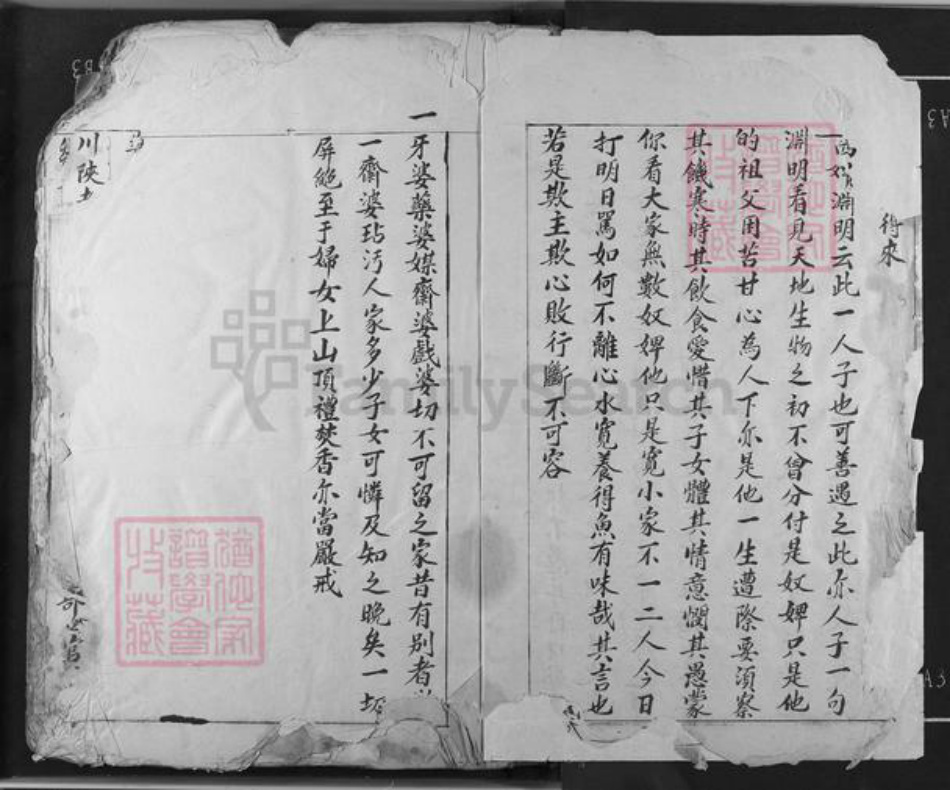 待來
淵明云此一人子也可善遇之此亦人子一句
淵明看見天地生物之初不曾分付是奴婢只是他
的祖父用苦甘心為人下亦是他一生遭際要須察
其饑寒時其飲食愛惜其子女體其情意憫其愚蒙
你看大家無數奴婢他只是寬小家不一二人今日
打明日罵如何不離心水寬養得魚有味哉其言也
若是欺主欺心敗行斷不可容
一牙婆藥婆媒齋婆戲婆切不可留之家昔有別者
一齋婆玷污人家多少子女可憐及知之晚矣一切
屏絕至于婦女上山頂禮焚香亦當嚴戒
川陝土
FamilySearch
A3
A3